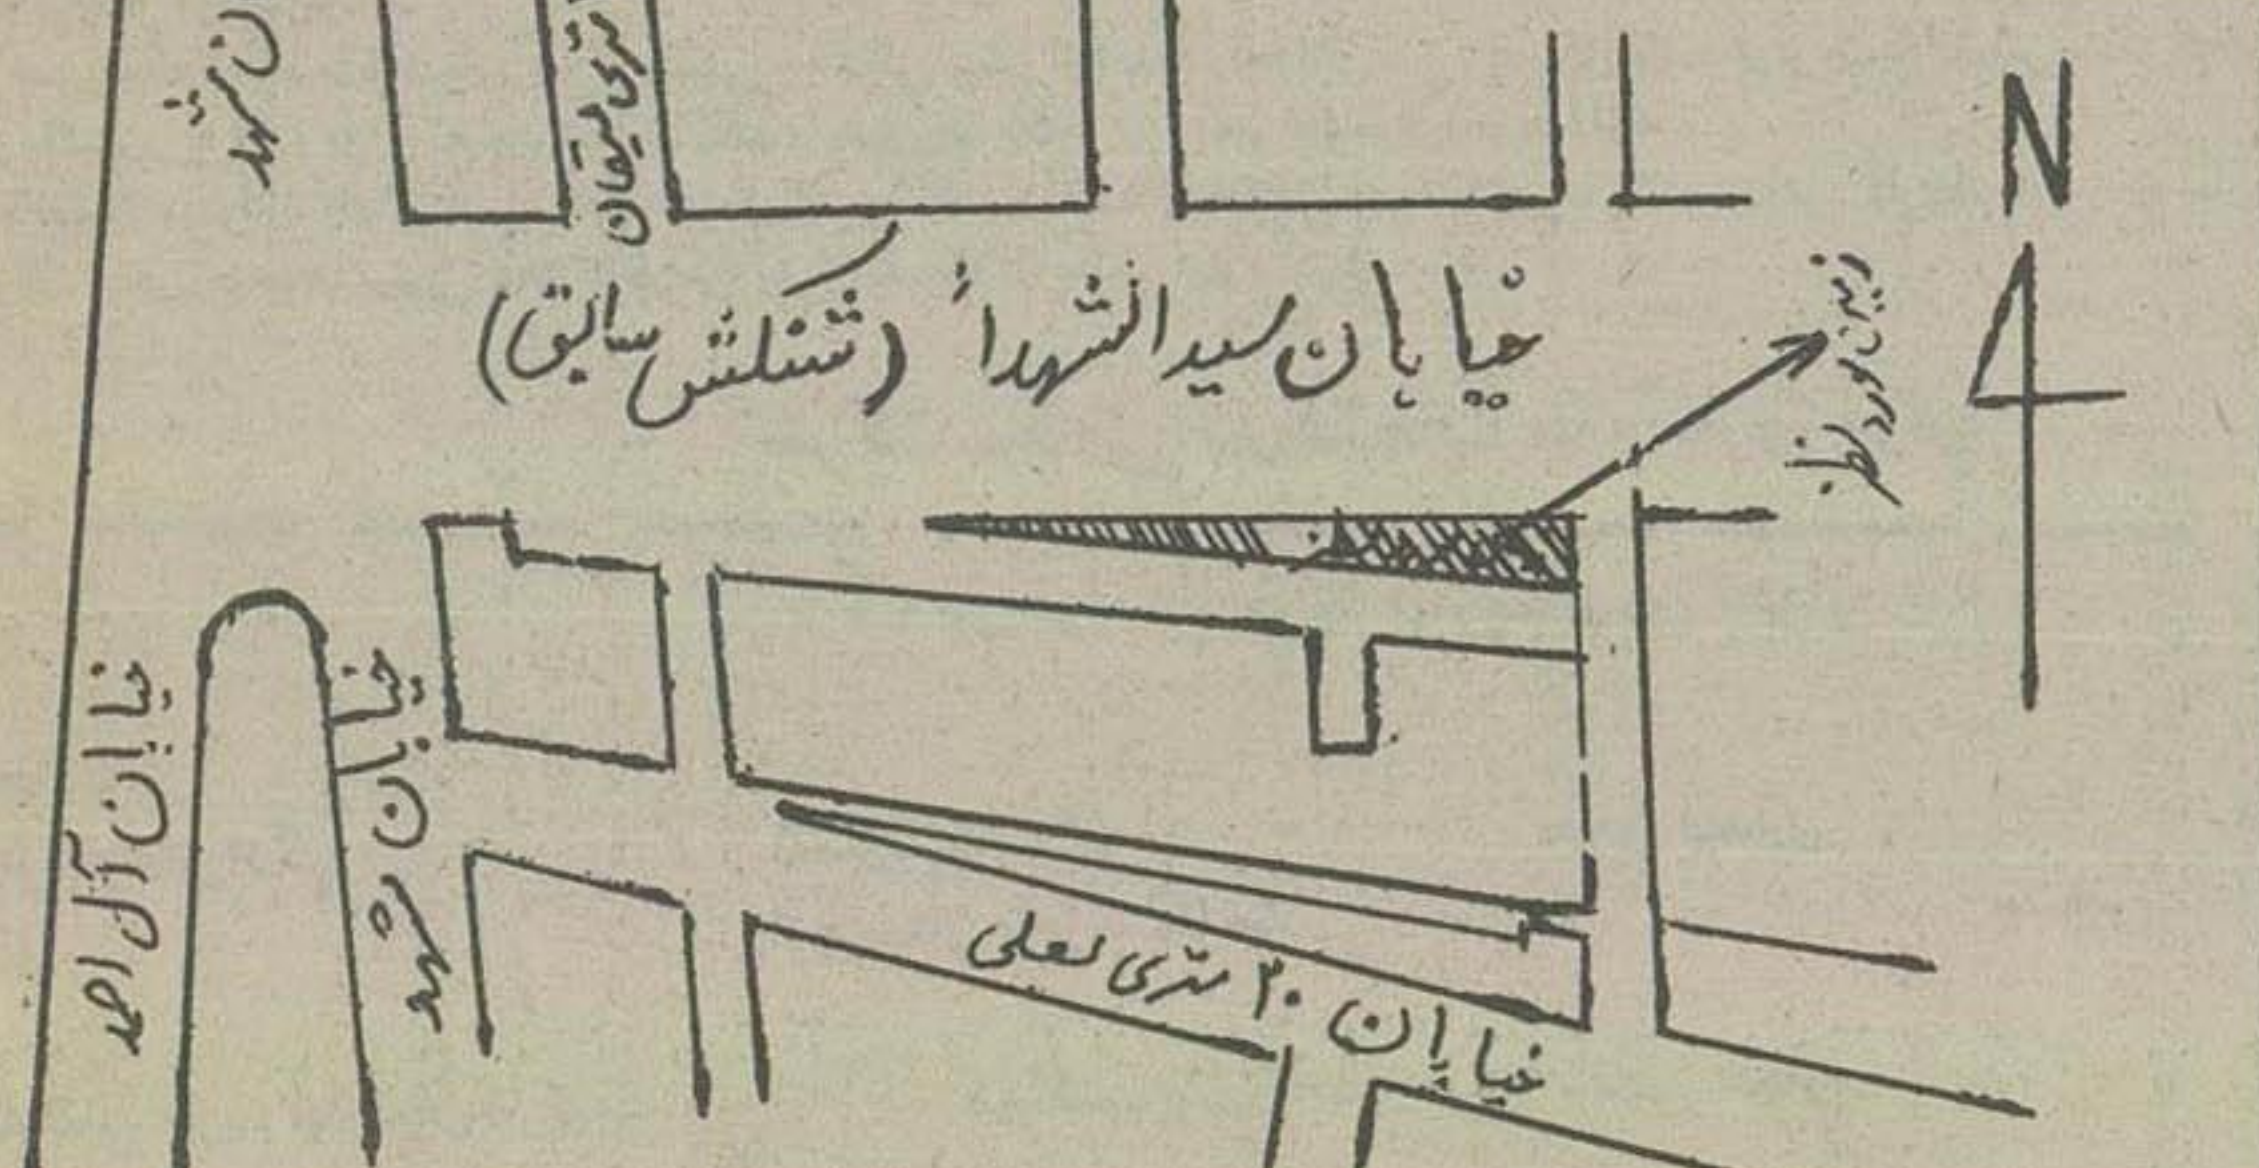 ن مشهد
متری لیقان
N
خیابان سیدالشهداء (شنکلش سابق)
زمین مورد نظر
خیابان آل احمد
خیابان مشهد
خیابان ۳۰ متری لعلی